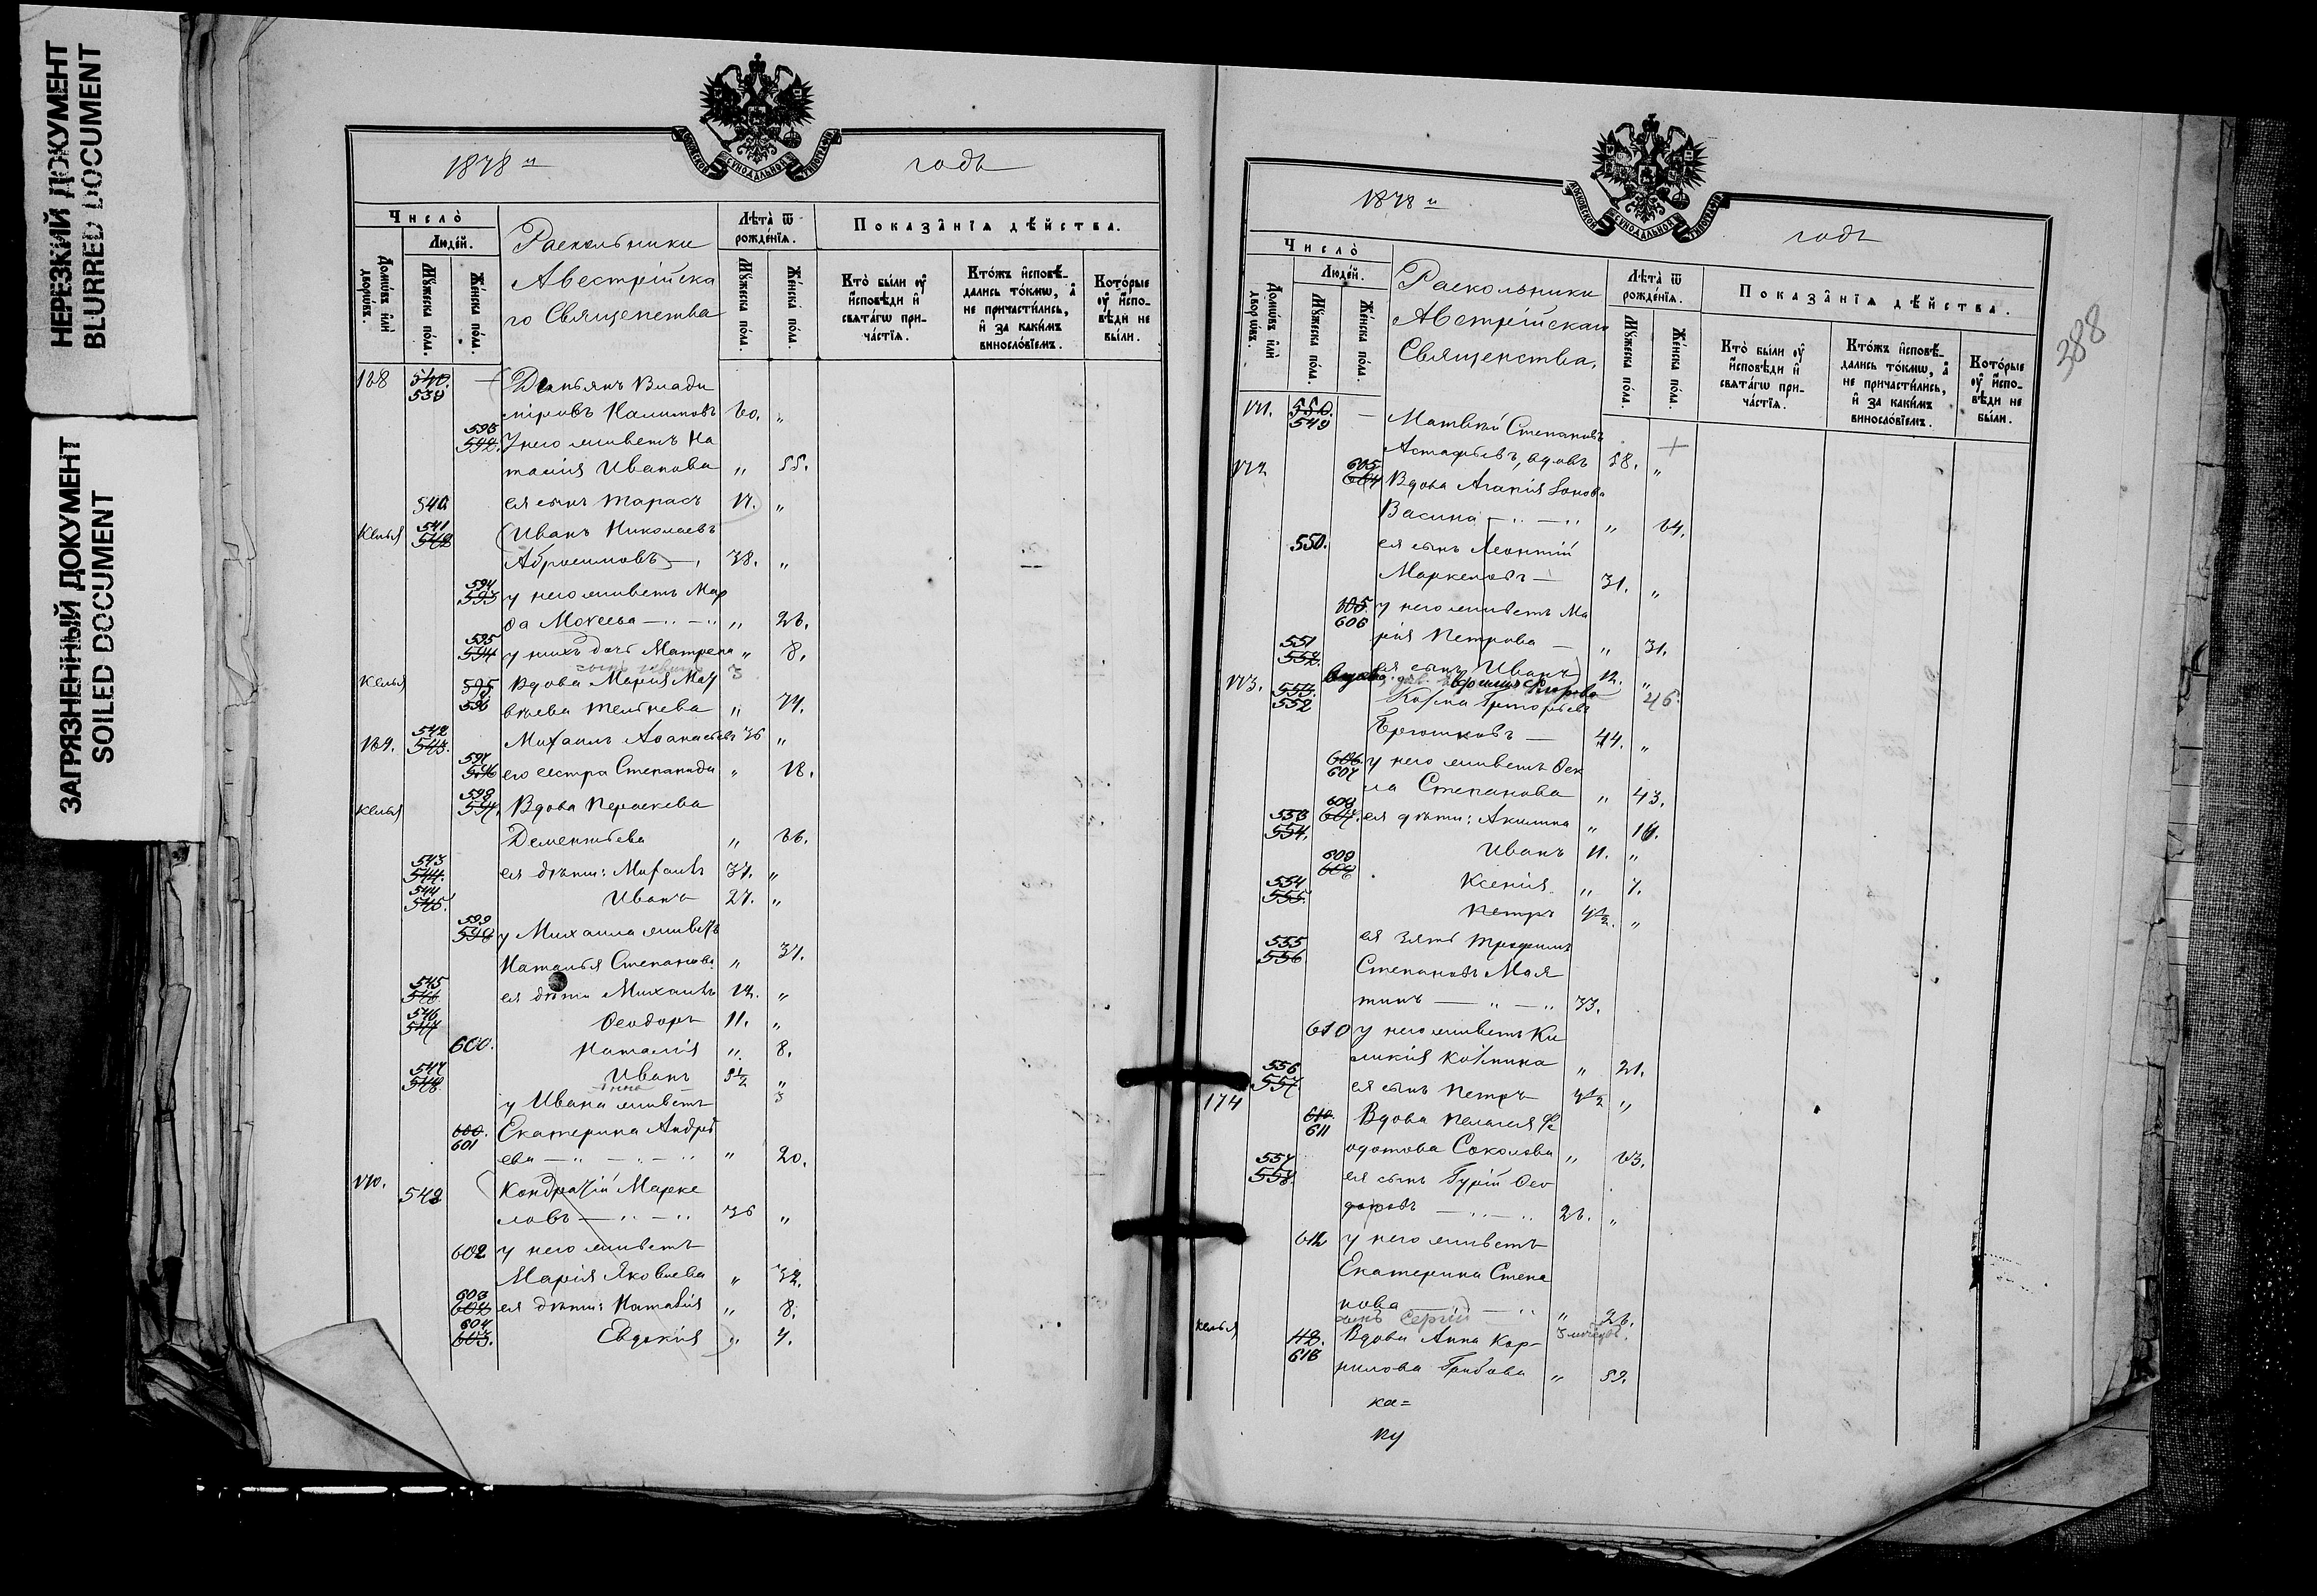 НЕРЕЗКИЙ ДОКУМЕНТ
BLURRED DOCUMENT
ЗАГРЯЗНЕННЫЙ ДОКУМЕНТ
SOILED DOCUMENT
МОСКОВСКОЙ СѴНОДАЛЬНОЙ ТИПОГРАФІИ
1878 и годъ
Число̀
Людей.
Домѡвъ и҆лѝ дворѡвъ.
Мꙋ́жеска по́ла.
Же́нска по́ла.
Раскольники
Австрійска
го Священства
Лѣта̀ ѿ рожде́нїѧ.
Мꙋ́жеска по́ла.
Же́нска по́ла.
Показа̂нїѧ дѣ́йства.
Кто̀ бы́ли ᲂу҆ и҆сповѣ́ди и҆ свѧта́гѡ при-ча́стїѧ.
Кто́жъ и҆сповѣ-дались то́кмѡ, а҆ не причасти́лись, и҆ за каки́мъ винослові́емъ.
Кото́рые ᲂу҆ и҆спо-вѣ́ди не бы́ли.
168 540. 539 Демьянъ Влади
міровъ Калимовъ 60. "
593 592. У него живетъ На
талія Иванова " 55.
540 ея сынъ Тарасъ 17. "
Келья 541 542 Иванъ Николаевъ
Абросимовъ 38. "
594 593 у него живетъ Мар
ѳа Мокеева " 26.
595 594 у нихъ дочь Матрена " 8.
3
Келья 595 596 Вдова Марія Мат
вѣева " 71.
169. 542 543. Михаилъ Аѳанасьевъ 36 "
597 596 его сестра Степанида " 18.
Келья 598 597. Вдова Параскева
Дементьева " 66.
543 544. ея дѣти: Михаилъ 37. "
544 545. Иванъ 27. "
599 598 у Михаила живетъ
Наталья Степанова " 37.
545 546 ея дѣти Михаилъ 12. "
546 547 Ѳеодоръ 11. "
600. Наталія " 8.
547 548 Иванъ 5½ "
Анна 3
у Ивана живетъ
600. 601 Екатерина Андре
ева " 20.
170. 548 Кондратій Марке
ловъ 36 "
602 у него живетъ
Марія Яковлева " 32.
603 602 ея дѣти: Наталія " 8.
604 603. Евдокія " 4.
1878 и годъ
388
Число̀
Людей.
Домѡвъ и҆лѝ дворѡвъ.
Мꙋ́жеска по́ла.
Же́нска по́ла.
Раскольники
Австрійскаго
Священства.
Лѣта̀ ѿ рожде́нїѧ.
Мꙋ́жеска по́ла.
Же́нска по́ла.
Показа̂нїѧ дѣ́йства.
Кто̀ бы́ли ᲂу҆ и҆сповѣ́ди и҆ свѧта́гѡ при-ча́стїѧ.
Кто́жъ и҆сповѣ-дались то́кмѡ, а҆ не причасти́лись, и҆ за каки́мъ винослові́емъ.
Кото́рые ᲂу҆ и҆спо-вѣ́ди не бы́ли.
171. 550. 549 Матвѣй Степановъ
Астафьевъ, вдовъ 58. "
172 605 604 Вдова Агапія
Васина " 64.
550. ея сынъ Леонтій
Маркеловъ 31. "
605. 606 у него живетъ Ма
рія Петрова " 31.
551 552. ея сынъ Иванъ 12. "
46.
173. 553. 552 Козма Григорьевъ
Ерюшковъ 44. "
606. 607 у него живетъ Ѳек
ла Степанова " 43.
608 607. ея дѣти: Акилина " 16.
553 554. Иванъ 11. "
609 608 Ксенія " 7.
554 555. Петръ 4½. "
555 556 ея зять Трофимъ
Степановъ Мал
тинъ 33.
610 у него живетъ Ки
ликія Козмина " 21.
556 557 ея сынъ Петръ 4½ "
174 610. 611 Вдова Пелагея Ѳе
одотова Соколова " 63.
557 558. ея сынъ Гурій Ѳео
доровъ 26. "
612 у него живетъ
Екатерина Степа
нова " 26.
сынъ Сергій
Келья 612. 613 Вдова Анна Кор-
нилова Грибова " 59.
ка=
пу